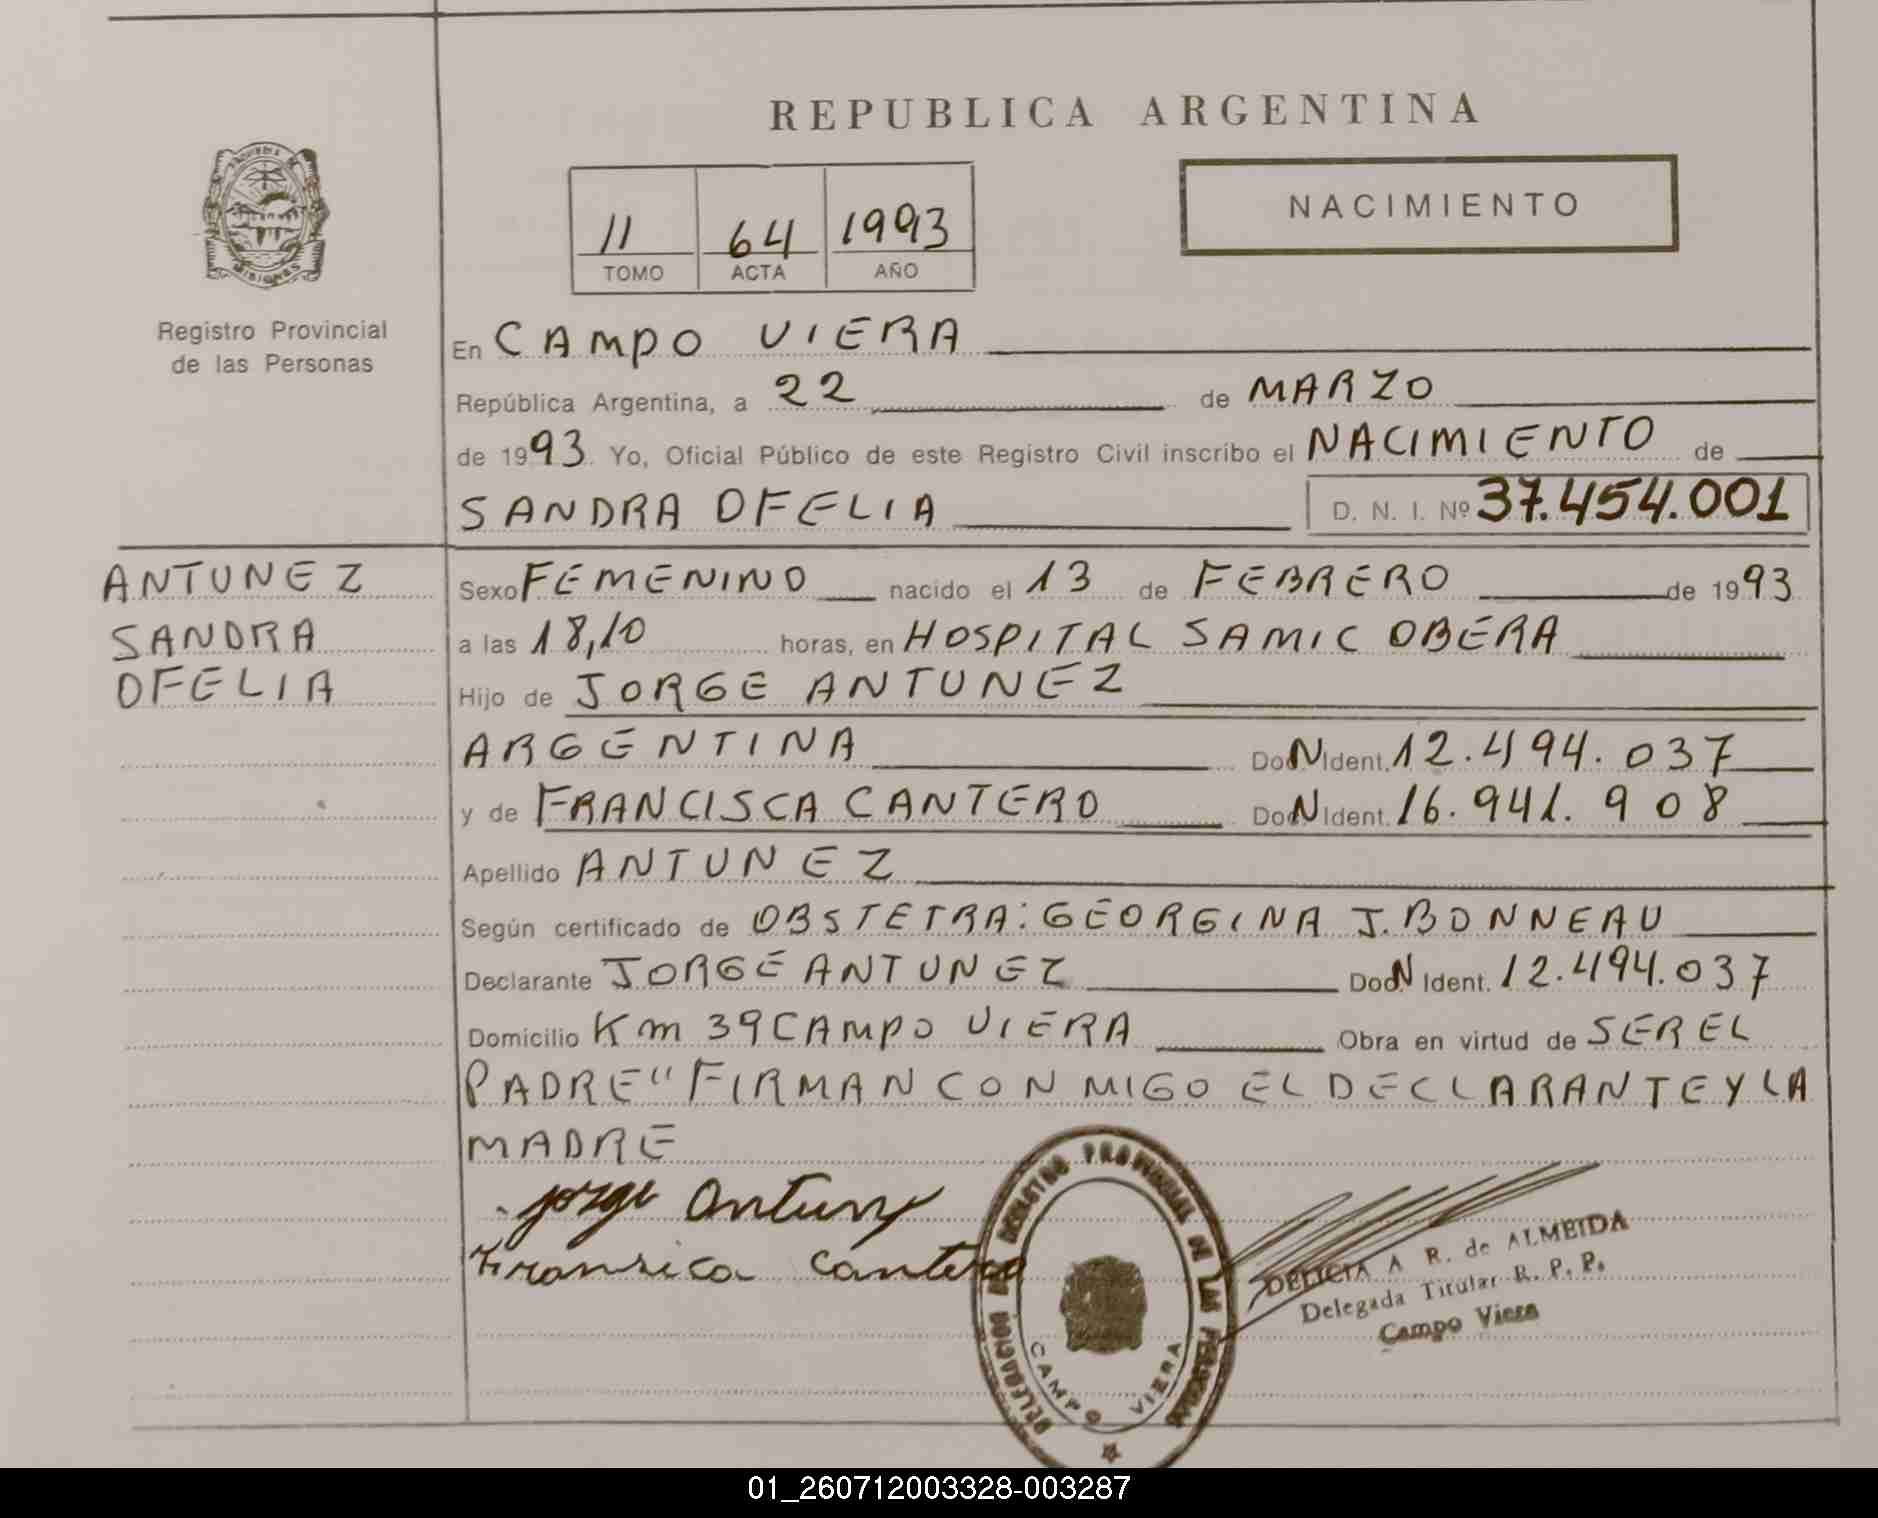 REPUBLICA ARGENTINA
PROVINCIA DE
MISIONES
Registro Provincial
de las Personas
11 64 1993
TOMO ACTA AÑO
NACIMIENTO
En CAMPO VIERA
República Argentina, a 22 de MARZO
de 1993. Yo, Oficial Público de este Registro Civil inscribo el NACIMIENTO de
SANDRA OFELIA D. N. I. Nº 37.454.001
ANTUNEZ
SANDRA
OFELIA
Sexo FEMENINO nacido el 13 de FEBRERO de 1993
a las 18,10 horas, en HOSPITAL SAMIC OBERA
Hijo de JORGE ANTUNEZ
ARGENTINA Doc N Ident. 12.494.037
y de FRANCISCA CANTERO Doc N Ident. 16.941.908
Apellido ANTUNEZ
Según certificado de OBSTETRA: GEORGINA J. BONNEAU
Declarante JORGE ANTUNEZ Doc N Ident. 12.494.037
Domicilio Km 39 CAMPO VIERA Obra en virtud de SER EL
PADRE" FIRMAN CONMIGO EL DECLARANTE Y LA
MADRE
Jorge Antunez
Fransica Cantero
DELEGACION DEL REGISTRO PROVINCIAL DE LAS PERSONAS
CAMPO VIERA
DELICIA A R. de ALMEIDA
Delegada Titular R. P. P.
Campo Viera
01_260712003328-003287